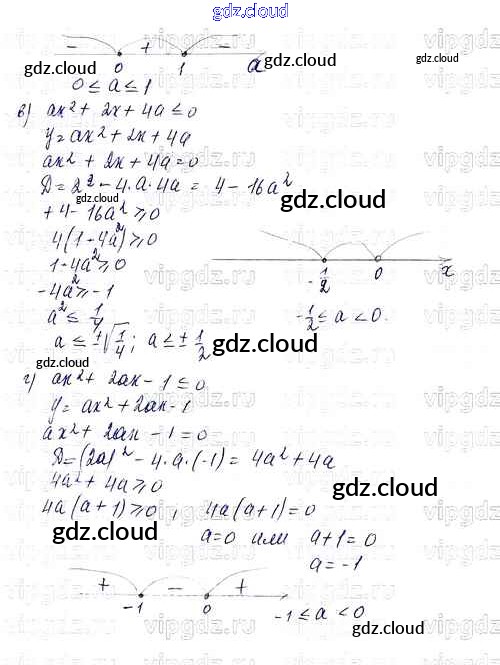 gdz.cloud
- + -
0 1 a
gdz.cloud gdz.cloud
0 ≤ a ≤ 1
в) ax² + 2x + 4a ≤ 0
y = ax² + 2x + 4a
ax² + 2x + 4a = 0
D = 2² - 4·a·4a = 4 - 16a²
gdz.cloud
+4 - 16a² ≥ 0
gdz.cloud
4(1 - 4a²) ≥ 0
1 - 4a² ≥ 0
-1/2 0 x
-4a² ≥ -1
a² ≤ 1/4
-1/2 ≤ a < 0.
a ≤ ±√1/4; a ≤ ±1/2
gdz.cloud
gdz.cloud
г) ax² + 2ax - 1 ≤ 0
y = ax² + 2ax - 1
ax² + 2ax - 1 = 0
D = (2a)² - 4·a·(-1) = 4a² + 4a
4a² + 4a ≥ 0
gdz.cloud
4a(a + 1) ≥ 0; 4a(a + 1) = 0
gdz.cloud
a = 0 или a + 1 = 0
a = -1
+ - +
-1 0
-1 ≤ a < 0
gdz.cloud
vipgdz.ru